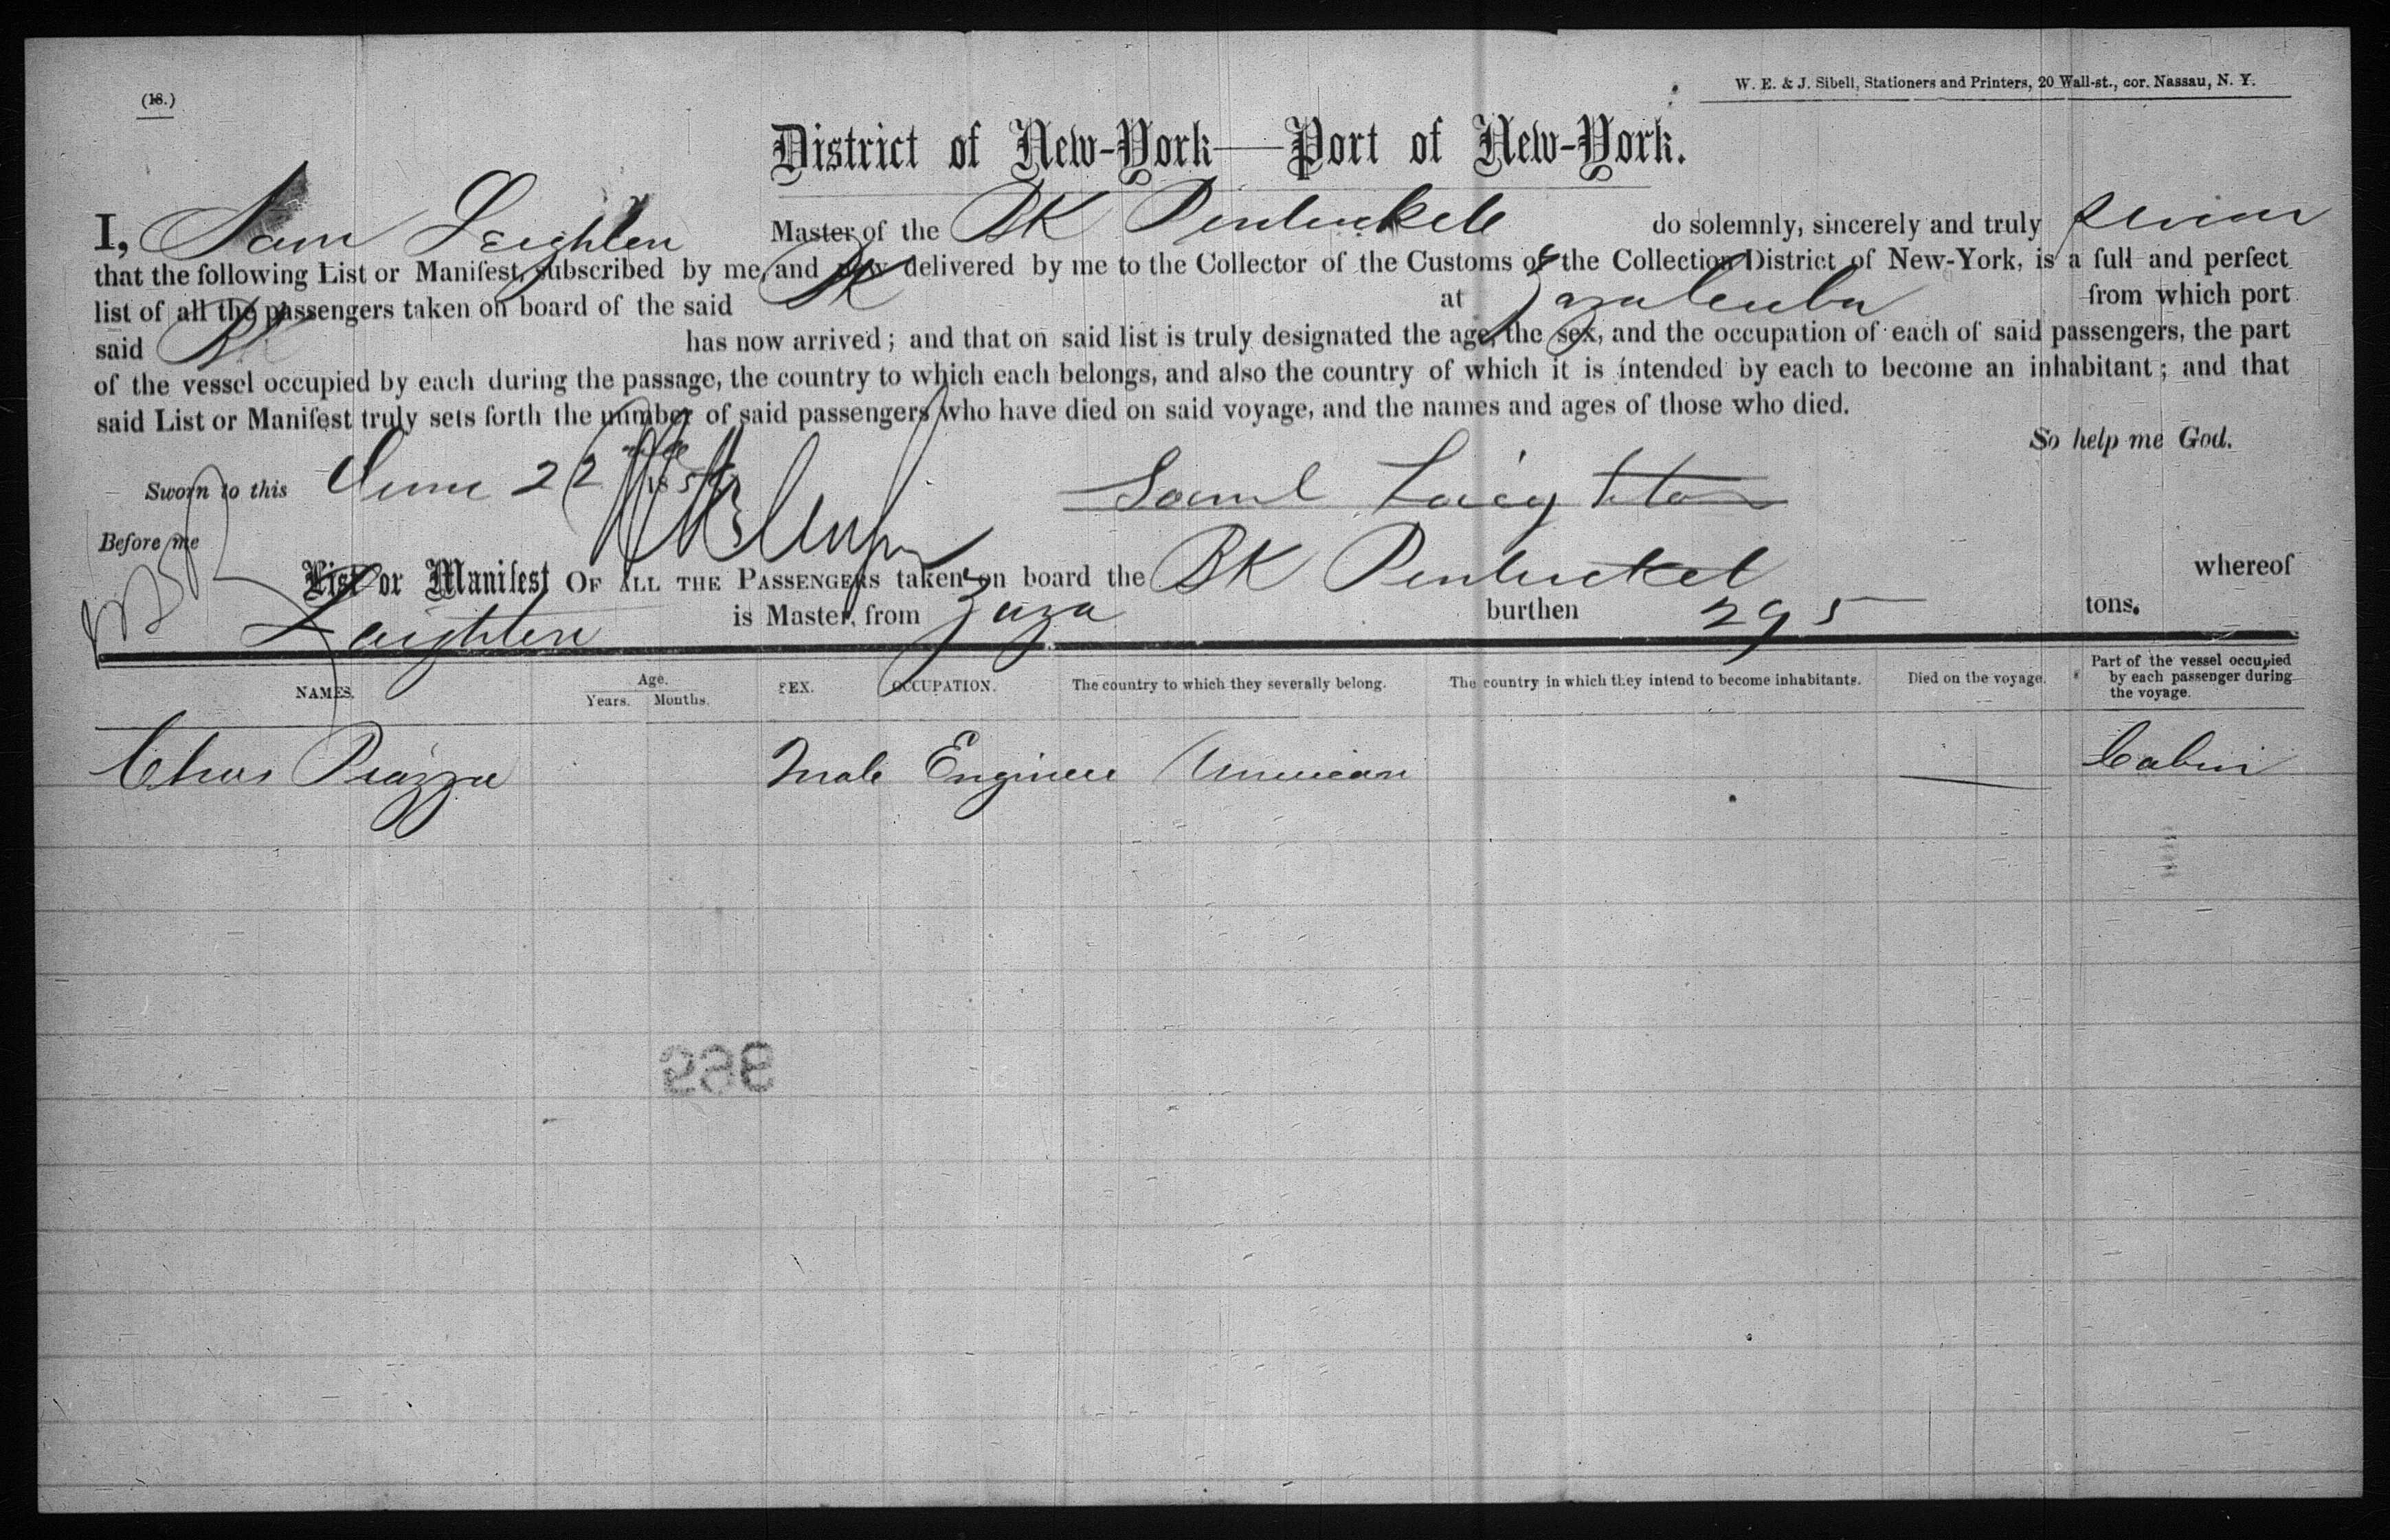 (18.)
W. E. & J. Sibell, Stationers and Printers, 20 Wall-st., cor. Nassau, N. Y.
District of New-York—Port of New-York.
I, Sam Leighton Master of the BK Pentuckett do solemnly, sincerely and truly swear
that the following List or Manifest, subscribed by me, and now delivered by me to the Collector of the Customs of the Collection District of New-York, is a full and perfect
list of all the passengers taken on board of the said BK at Zaza Cuba from which port
said BK has now arrived; and that on said list is truly designated the age, the sex, and the occupation of each of said passengers, the part
of the vessel occupied by each during the passage, the country to which each belongs, and also the country of which it is intended by each to become an inhabitant; and that
said List or Manifest truly sets forth the number of said passengers who have died on said voyage, and the names and ages of those who died.
So help me God.
Sworn to this June 22 185
Saml Leighton
Before me
List or Manifest OF ALL THE PASSENGERS taken on board the BK Pentucket whereof
Leighton is Master, from Zaza burthen 295 tons.
NAMES. Age. Years. Months. SEX. OCCUPATION. The country to which they severally belong. The country in which they intend to become inhabitants. Died on the voyage. Part of the vessel occupied by each passenger during the voyage.
Chas Piazza Male Engineer American — Cabin